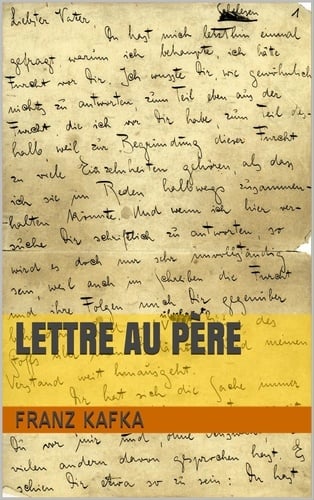 Schelesen
1
Liebster Vater
Du hast mich letzthin einmal
gefragt, warum ich behaupte, ich hätte
Furcht vor Dir. Ich wusste Dir, wie gewöhnlich
nichts zu antworten, zum Teil eben aus der
Furcht die ich vor Dir habe, zum Teil des-
halb weil zur Begründung dieser Furcht
zu viele Einzelheiten gehören, als dass
ich sie im Reden halbwegs zusammen-
halten könnte. Und wenn ich hier ver-
suche Dir schriftlich zu antworten, so
wird es doch nur sehr unvollständig
sein, weil auch im Schreiben die Furcht
und ihre Folgen mich Dir gegenüber
des
LETTRE AU PÈRE
Stoffs und meinen
Verstand weit hinausgeht.
Dir hat sich die Sache immer
FRANZ KAFKA
Du vor mir und, ohne
vielen andern davon gesprochen hast. Es
schien Dir etwa so zu sein: Du hast